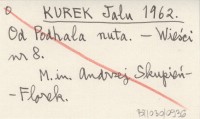 KUREK Jalu 1962.
Od Podhala nuta. - Wieści
nr 8.
M. in. Andrzej Skupień-
-Florek.